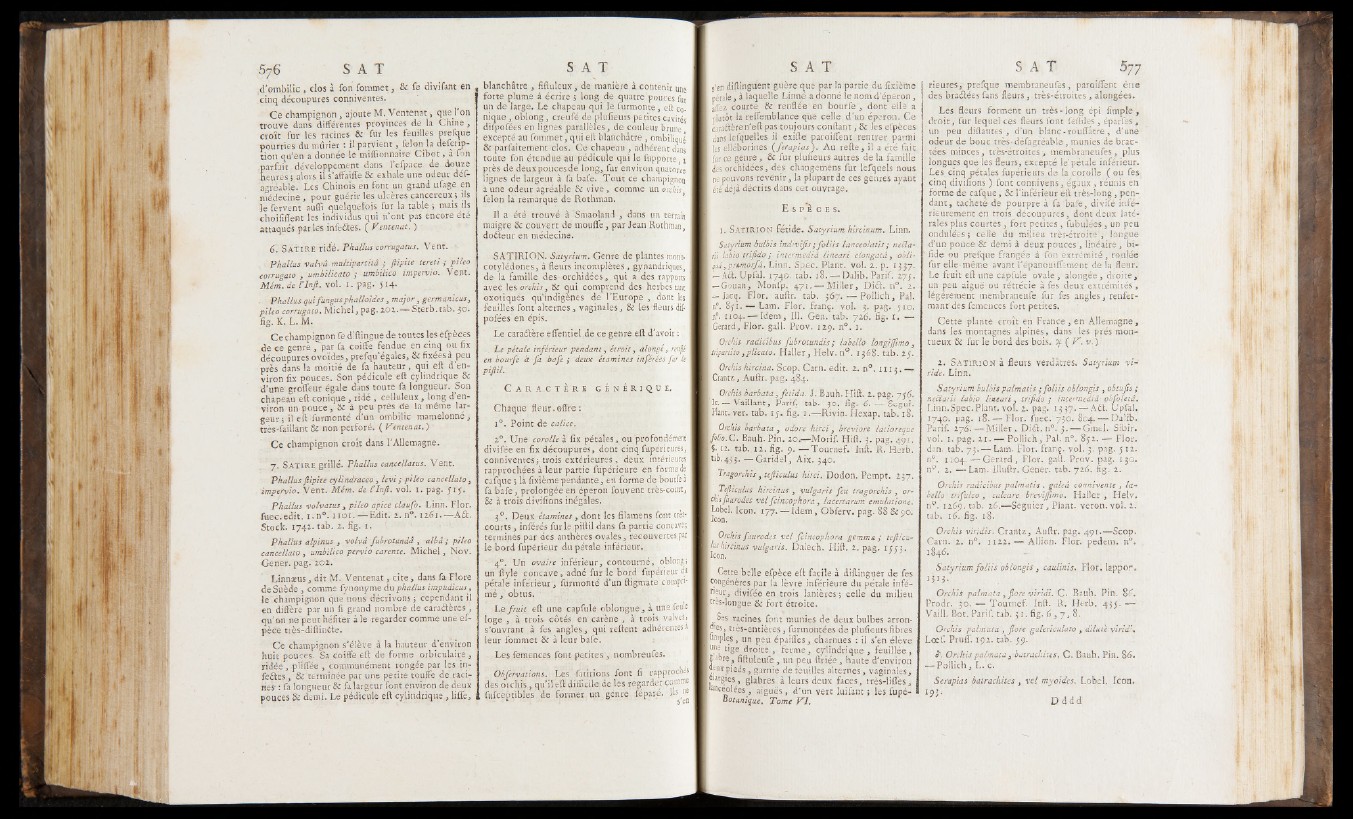 576 S A T
d'ombilic, clos à son sommet, & se divisant en
cinq découpures conniventes.
Ce champignon, ajoute M. Ventenat, que l'on
trouve dans différentes provinces de la Chine,
croît sur les racines & sur les feuilles presque
pourries du mûrier : il parvient, selon la descrip-
tion qu'en a donnée le missionnaire Cibot, à son
parfait développement dans l'espace de douze
heures ; alors il s'affaisse & exhale une odeur désa-
gréable. Les Chinois en font un grand usage en
médecine, pour guérir les ulcères cancereux ; ils
le servent aussi quelquefois sur la table ; mais ils
choisissent les individus qui n'ont pas encore été
attaqués par les insectes. ( Ventenat. )
6. SATIRE ridé. Phallus corrugatus. Vent.
Phallus volvâ multipartitâ ; stipite tereti ; pileo
corrugato, umbilicato ; umbilico impervio. Vent.
Mém. de l'Inst. vol. 1. pag. 514.
Phallus qui fungus phalloides, major, germanicus,
pileo corrugato. Michel, pag. 202. — Sterb. tab. 30.
fig. K. L. M.
Ce champignon se distingue de toutes les espèces
de ce genre, par sa coiffe fendue en cinq ou six
découpures ovoïdes, presqu'égales, & fixées à peu
près dans la moitié de sa hauteur, qui est d'en-
viron six pouces. Son pédicule est cylindrique &
d'une grosseur égale dans toute sa longueur. Son
chapeau est conique, ridé, celluleux, long d'en-
viron un pouce, & à peu près de la même lar-
geur ; il est surmonté d'un ombilic mamelonné,
très-saillant & non perforé. ( Ventenat. )
Ce champignon croît dans l'Allemagne.
7. SATIRE grillé. Phallus cancellatus. Vent.
Phallus stipite cylindraceo, levi ; pileo cancellato,
impervio. Vent. Mém. de l'Inst. vol. 1. pag. 515.
Phallus volvatus, pileo apice clauso. Linn. Flor.
suec. edit. 1. n°. 1101. — Edit. 2. n°. 1261. — Act.
Stock. 1742. tab. 2. fig. 1.
Phallus alpinus, volvâ subrotundâ, albâ ; pileo
cancellato, umbilico pervio carente. Michel, Nov.
Gener. pag. 202.
Linnæus, dit M. Ventenat, cite, dans sa Flore
de Suède, comme synonyme du phallus impudicus,
le champignon que nous décrivons ; cependant il
en diffère par un si grand nombre de caractères,
qu'on ne peut hésiter à le regarder comme une es-
pèce très-distincte.
Ce champignon s'élève à la hauteur d'environ
huit pouces. Sa coiffe est de forme orbiculaire,
ridée, plissée, communément rongée par les in-
sectes, & terminée par une petite touffe de raci-
nes : sa longueur & sa largeur sont environ de deux
pouces & demi. Le pédicule est cylindrique, lisse,
S A T
blanchâtre, fistuleux, de manière à contenir une
forte plume à écrire ; long de quatre pouces sur
un de large. Le chapeau qui le surmonte, est co-
nique, oblong, creusé de plusieurs petites cavités
disposées en lignes parallèles, de couleur brune,
excepté au sommet, qui est blanchâtre, ombiliqué
& parfaitement clos. Ce chapeau, adhérent dans
toute son étendue au pédicule qui le supporte, a
près de deux pouces de long, sur environ quatorze
lignes de largeur à sa base. Tout ce champignon
a une odeur agréable & vive, comme un orchis,
selon la remarque de Rothman.
Il a été trouvé à Smaoland, dans un terrain
maigre & couvert de mousse, par Jean Rothman,
docteur en médecine.
SATIRION. Satyrium. Genre de plantes mono-
cotylédones, à fleurs incomplètes, gynandriques,
de la famille des orchidées, qui a des rapports
avec les orchis, & qui comprend des herbes tant
exotiques qu'indigènes de l'Europe, dont les
feuilles sont alternes, vaginales, & les fleurs dis-
posées en épis.
Le caractère essentiel de ce genre est d'avoir :
Le pétale inférieur pendant, étroit, alongé, renflé
en bourse à sa base ; deux étamines insérées sur le
pistil.
CARACTÈRE GÉNÉRIQUE.
Chaque fleur offre :
1°. Point de calice.
2°. Une corolle à six pétales, ou profondément
divisée en six découpures, dont cinq supérieures,
conniventes ; trois extérieures, deux intérieures
rapprochées à leur partie supérieure en forme de
casque ; la sixième pendante, en forme de bourse à
sa base, prolongée en éperon souvent très-court,
& à trois divisions inégales.
3°. Deux étamines, dont les filamens sont très-
courts, insérés sur le pistil dans sa partie concave,
terminés par des anthères ovales, recouvertes par
le bord supérieur du pétale inférieur.
4°. Un ovaire inférieur, contourné, oblong ;
un style concave, adné sur le bord supérieur du
pétale inférieur, surmonté d'un stigmate compri-
mé, obtus.
Le fruit est une capsule oblongue, à une seule
loge, à trois côtés en carène, à trois valves,
s'ouvrant à ses angles, qui restent adhérentes à
leur sommet & à leur base.
Les semences sont petites, nombreuses.
Observations. Les satirions sont si rapprochés
des orchis, qu'il est difficile de les regarder comme
susceptibles de former un genre séparé. Ils ne
s'en
S A T
s'en distinguent guère que par la partie du sixième
pétale, à laquelle Linné a donné le nom d'éperon,
assez courte & renflée en bourse, dont elle a
plutôt la ressemblance que celle d'un éperon. Ce
caractère n'est pas toujours constant, & les espèces
dans lesquelles il existe paroissent rentrer parmi
les elléborines (serapias). Au reste, il a été fait
sur ce genre, & sur plusieurs autres de la famille
des orchidées, des changemens sur lesquels nous
ne pouvons revenir, la plupart de ces genres ayant
été déjà décrits dans cet ouvrage.
ESPÈCES.
1. SATIRION fétide. Satyrium hircinum. Linn.
Satyrium bulbis indivisis ; foliis lanceolatis ; necta-
rii labio trifido ; intermediâ lineari elongatâ, obli-
quâ, præmorsâ. Linn. Spec. Plant. vol. 2. p. 1337.
— Act. Upsal. 1740. tab. 18. — Dalib. Paris. 275.
— Gouan, Monsp. 471. — Miller, Dict. n°. 2.
— Jacq. Flor. austr. tab. 367. — Pollich, Pal.
n°. 851. — Lam. Flor. franç. vol. 3. pag. 510.
n°. 1104. — Idem, Ill. Gen. tab. 726. fig. 1. —
Gerard, Flor. gall. Prov. 129. n°. 1.
Orchis radicibus subrotundis ; labello longissimo,
tripartito, plicato. Haller, Helv. n°. 1368. tab. 25.
Orchis hircina. Scop. Carn. edit. 2. n°. 1113. —
Crantz, Austr. pag. 484.
Orchis barbata, fœtida. J. Bauh. Hist. 2. pag. 756.
Ic. — Vaillant, Paris. tab. 30. fig. 6. — Seguier,
Plant. ver. tab. 15. fig. 1. — Rivin. Hexap. tab. 18.
Orchis barbata, odore hirci, breviore latioreque
folio. C. Bauh. Pin. 20. — Moris. Hist. 3. pag. 491.
§. 12. tab. 12. fig. 9. — Tournef. Inst. R. Herb.
tab. 433. — Garidel, Aix. 340.
Tragorchis, testiculus hirci. Dodon. Pempt. 237.
Testiculus hircinus, vulgaris seu tragorchis, or-
chis saurodes vel scincophora, lacertarum emulatione.
Lobel. Icon. 177. — Idem, Observ. pag. 88 & 90.
Icon.
Orchis saurodes vel scincophora gemma ; testicu-
lus hircinus vulgaris. Dalech. Hist. 2. pag. 1553.
Icon.
Cette belle espèce est facile à distinguer de ses
congénères par la lèvre inférieure du pétale infé-
rieur, divisée en trois lanières ; celle du milieu
très-longue & fort étroite.
Ses racines sont munies de deux bulbes arron-
dies, très-entières, surmontées de plusieurs fibres
simples, un peu épaisses, charnues : il s'en élève
une tige droite, ferme, cylindrique, feuillée,
glabre, fistuleuse, un peu striée, haute d'environ
deux pieds, garnie de feuilles alternes, vaginales,
élargies, glabres à leurs deux faces, très-lisses,
lancéolées, aiguës, d'un vert luisant ; les supé-
Botanique. Tome VI.
S A T 577
rieures, presque membraneuses, paroissent être
des bractées sans fleurs, très-étroites, alongées.
Les fleurs forment un très-long épi simple,
droit, sur lequel ces fleurs sont sessiles, éparses,
un peu distantes, d'un blanc-roussâtre, d'une
odeur de bouc très-désagréable, munies de brac-
tées minces, très-étroites, membraneuses, plus
longues que les fleurs, excepté le pétale inférieur.
Les cinq pétales supérieurs de la corolle ( ou ses
cinq divisions ) sont connivens, égaux, réunis en
forme de casque, & l'inférieur est très-long, pen-
dant, tacheté de pourpre à sa base, divisé infé-
rieurement en trois découpures, dont deux laté-
rales plus courtes, fort petites, subulées, un peu
ondulées ; celle du milieu très-étroite, longue
d'un pouce & demi à deux pouces, linéaire, bi-
fide ou presque frangée à son extrémité, roulée
sur elle-même avant l'épanouissement de la fleur.
Le fruit est une capsule ovale, alongée, droite,
un peu aiguë ou rétrécie à ses deux extrémités,
légérement membraneuse sur ses angles, renfer-
mant des semences fort petites.
Cette plante croît en France, en Allemagne,
dans les montagnes alpines, dans les prés mon-
tueux & sur le bord des bois. ♃ ( V. v. )
2. SATIRION à fleurs verdâtres. Satyrium vi-
ride. Linn.
Satyrium bulbis palmatis ; foliis oblongis, obtusis ;
nectarii labio lineari, trifido ; intermediâ obsoletâ.
Linn. Spec. Plant. vol. 2. pag. 1337. — Act. Upsal.
1740. pag. 18. — Flor. suec. 730. 804. — Dalib.
Paris. 276. — Miller, Dict. n°. 3. — Gmel. Sibir.
vol. 1. pag. 21. — Pollich, Pal. n°. 852. — Flor.
dan. tab. 73. — Lam. Flor. franç. vol. 3. pag. 512.
n°. 1104. — Gerard, Flor. gall. Prov. pag. 130.
n°. 2. — Lam. Illustr. Gener. tab. 726. fig. 2.
Orchis radicibus palmatis, galeâ connivente, la-
bello trifido, calcare brevissimo. Haller, Helv.
n°. 1269. tab. 26. — Seguier, Plant. veron. vol. 2.
tab. 16. fig. 18.
Orchis viridis. Crantz, Austr. pag. 491. — Scop.
Carn. 2. n°. 1122. — Allion. Flor. pedem. n°.
1846.
Satyrium foliis oblongis, caulinis. Flor. lappon.
1313.
Orchis palmata, flore viridi. C. Bauh. Pin. 86.
Prodr. 30. — Tournef. Inst. R. Herb. 435. —
Vaill. Bot. Paris. tab. 31. fig. 6, 7, 8.
Orchis palmata, flore galericulato, dilutè viridi.
Lœs. Pruss. 192. tab. 59.
Orchis palmata, batrachites. C. Bauh. Pin. 86.
— Pollich, L. c.
Serapias batrachites, vel myodes. Lobel. Icon.
193.
D d d d